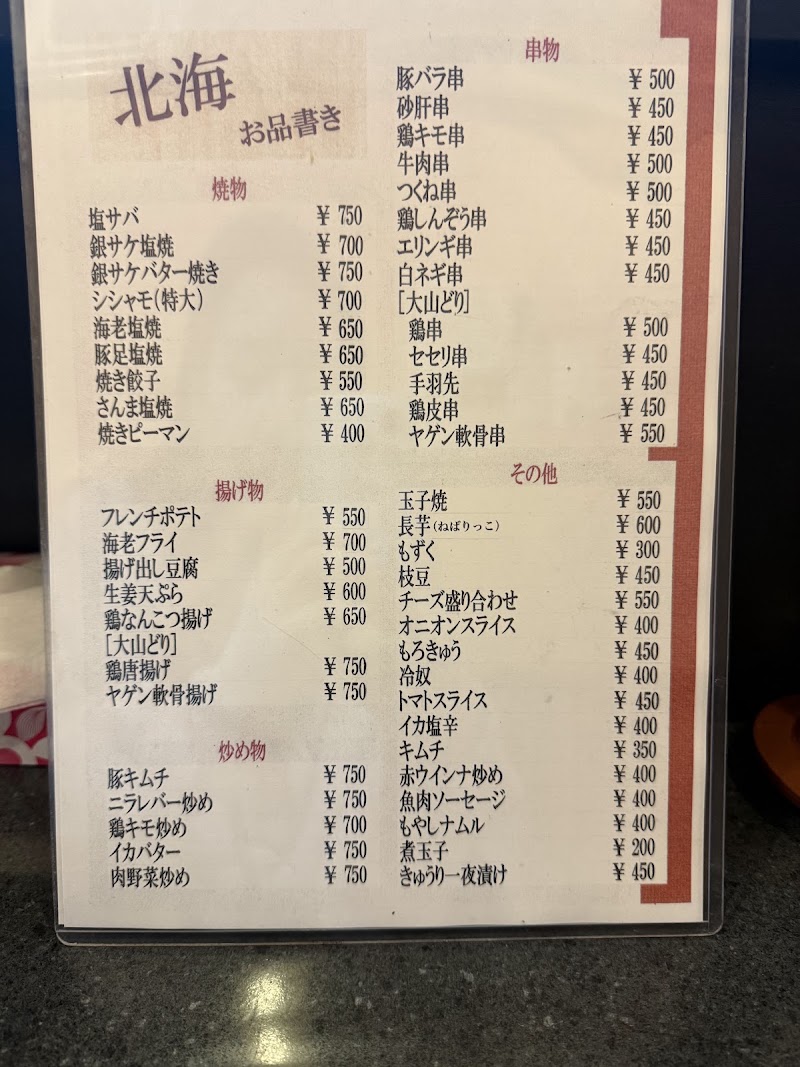 北海
お品書き
焼物
塩サバ ¥ 750
銀サケ塩焼 ¥ 700
銀サケバター焼き ¥ 750
シシャモ(特大) ¥ 700
海老塩焼 ¥ 650
豚足塩焼 ¥ 650
焼き餃子 ¥ 550
さんま塩焼 ¥ 650
焼きピーマン ¥ 400
揚げ物
フレンチポテト ¥ 550
海老フライ ¥ 700
揚げ出し豆腐 ¥ 500
生姜天ぷら ¥ 600
鶏なんこつ揚げ ¥ 650
[大山どり]
鶏唐揚げ ¥ 750
ヤゲン軟骨揚げ ¥ 750
炒め物
豚キムチ ¥ 750
ニラレバー炒め ¥ 750
鶏キモ炒め ¥ 700
イカバター ¥ 750
肉野菜炒め ¥ 750
串物
豚バラ串 ¥ 500
砂肝串 ¥ 450
鶏キモ串 ¥ 450
牛肉串 ¥ 500
つくね串 ¥ 500
鶏しんぞう串 ¥ 450
エリンギ串 ¥ 450
白ネギ串 ¥ 450
[大山どり]
鶏串 ¥ 500
セセリ串 ¥ 450
手羽先 ¥ 450
鶏皮串 ¥ 450
ヤゲン軟骨串 ¥ 550
その他
玉子焼 ¥ 550
長芋(ねばりっこ) ¥ 600
もずく ¥ 300
枝豆 ¥ 450
チーズ盛り合わせ ¥ 550
オニオンスライス ¥ 400
もろきゅう ¥ 450
冷奴 ¥ 400
トマトスライス ¥ 450
イカ塩辛 ¥ 400
キムチ ¥ 350
赤ウインナ炒め ¥ 400
魚肉ソーセージ ¥ 400
もやしナムル ¥ 400
煮玉子 ¥ 200
きゅうり一夜漬け ¥ 450